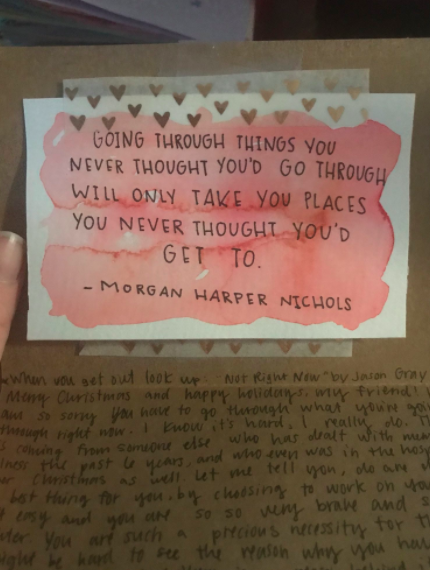 GOING THROUGH THINGS YOU
NEVER THOUGHT YOU'D GO THROUGH
WILL ONLY TAKE YOU PLACES
YOU NEVER THOUGHT YOU'D
GET TO.
- MORGAN HARPER NICHOLS
When you get out look up "Not Right Now" by Jason Gray
Merry Christmas and happy holidays, my friend!
am so sorry you have to go through what you're
through right now. I know it's hard, I really do.
coming from someone else who has dealt with
the past 6 years, and who even was in the
Christmas as well. Let me tell you,
best thing for you. by choosing to work on
easy and you are so so very brave and
You are such a precious necessity for
be hard to see the reason why you